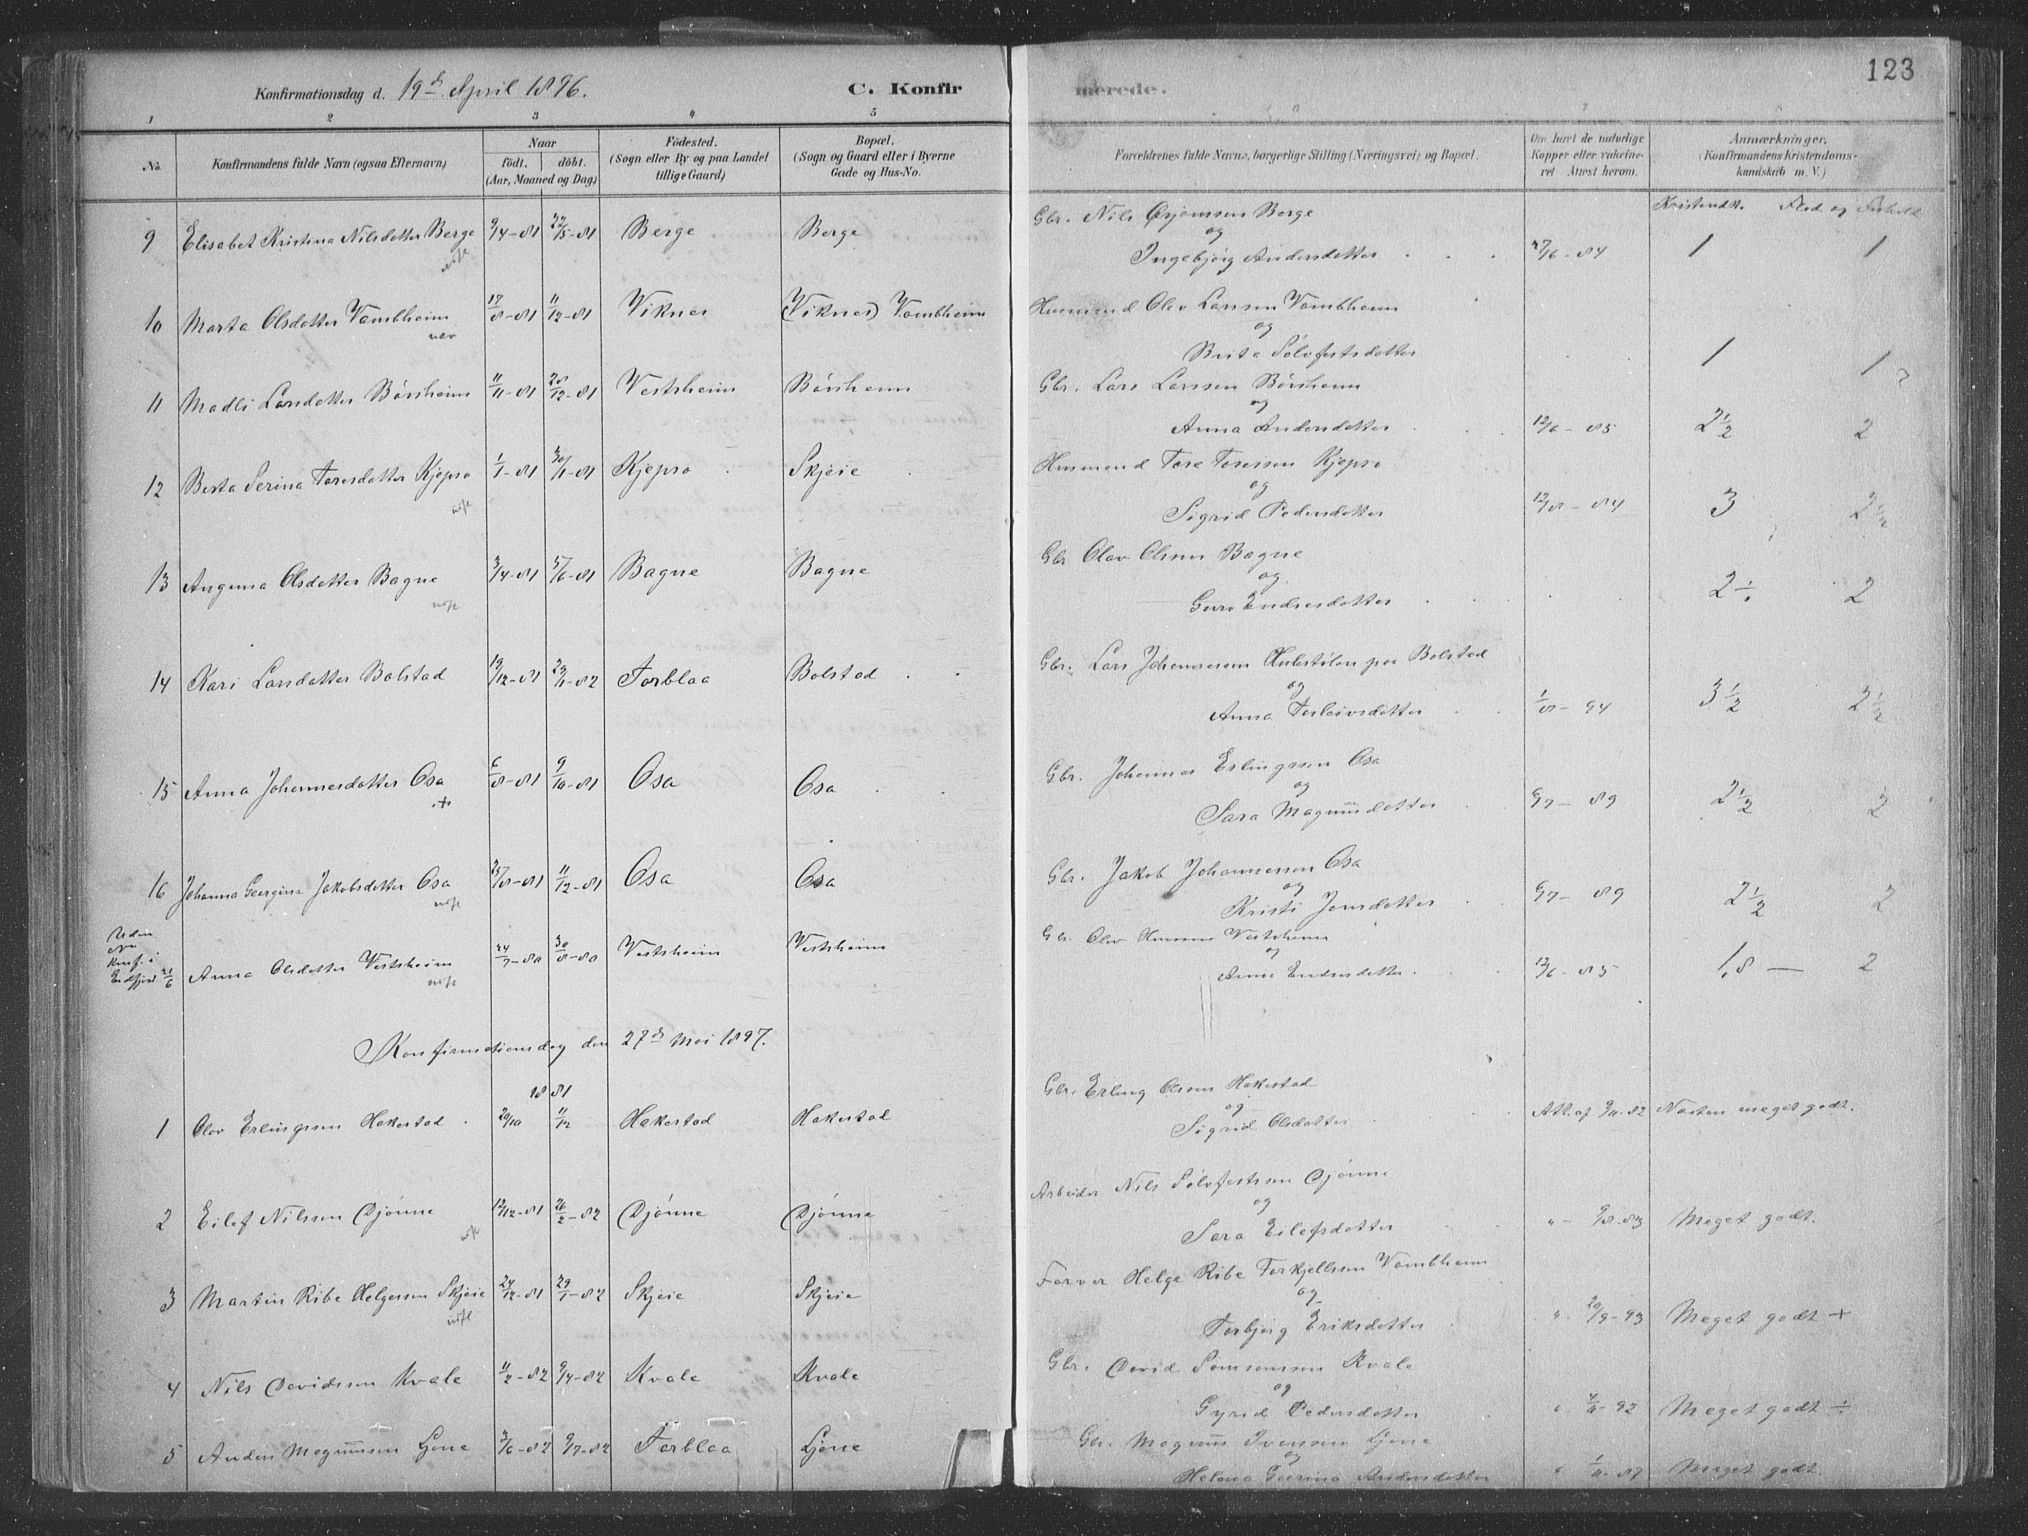 123
Konfirmationsdag d. 19d April 1896. C. Konfirmerede.
1 2 3 4 5 6 7 8
No. Konfirmandens fulde Navn (ogsaa Efternavn) Naar født. døbt. (Aar, Maaned og Dag) Fødested. (Sogn eller By og paa Landet tillige Gaard) Bopæl. (Sogn og Gaard eller i Byerne Gade og Hus-No. Forældrenes fulde Navne, borgerlige Stilling (Næringsvei) og Bopæl. Om havt de naturlige Kopper eller vakcineret Attest herom. Anmærkninger. (Konfirmandens Kristendomskundskab m. V.)
Kristendk. Flid og Forhold
9 Elisabet Kristina Nilsdatter Berge 9/4-81 22/5-81 Berge Berge Gbr. Nils Berge
og
Ingebjørg Andersdatter 27/6-84 1 1
10 Marta Olsdatter Vambheim 17/8-81 11/12-81 Viknes (Viknes) Vambheim Husmend Olav Larssen Vambheim
og
Brita Sølvfestsdatter 1 1
11 Madli Larsdatter Børsheim 11/11-81 28/12-81 Vestrheim Børsheim Gbr. Lars Larssen Børsheim
og
Anna Andersdatter 12/6-85 2 1/2 2
12 Berta Serina Toresdatter Kjepso 1/1-81 30/1-81 Kjepso Skjeie Husmend Tore Toressen Kjepso
og
Sigrid Pedersdatter 12/8-84 3 2 1/2
13 Angunna Olsdatter Bagne 3/4-81 5/6-81 Bagne Bagne Gbr Olav Olssen Bagne
og
Guro Endresdatter 2 ÷ 2
14 Kari Larsdatter Bolstad 19/12-81 29/1-82 Torblaa Bolstad Gbr. Lars Johannessen paa Bolstad
og
Anna Torleivsdatter 1/8-94 3 1/2 2 1/2
15 Anna Johannesdatter Osa 6/8-81 9/10-81 Osa Osa Gbr. Johannes Erlingssen Osa
og
Sara Magnusdatter 6/7-89 2 1/2 2
16 Johanna Georgina Jakobsdatter Osa 25/8-81 11/12-81 Osa Osa Gbr. Jakob Johannessen Osa
og
Kristi Jonsdatter 6/7-89 2 1/2 2
Uden
No
Konf. i
Eidfjord 21/6 Anna Olsdatter Vestrheim 24/7-80 30/8-80 Vestrheim Vestrheim Gbr. Olav Vestrheim
og
Anna Endresdatter 12/6-85 1,8 — 2
Konfirmationsdag den 27d Mai 1897.
1881
1 Olav Erlingssen Hakestad 20/10 11/12 Hakestad Hakestad Gbr. Erling Olssen Hakestad
og
Sigrid Olsdatter Att. af 9/11-82 Næsten meget godt.
2 Eilef Nilssen Djønne 12/12-81 26/2-82 Djønne Djønne Arbeider Nils Sølvfestsen Djønne
og
Sara Eilefsdatter " - 9/8-83 Meget godt.
3 Martin Ribe Helgessen Skjeie 24/12-81 29/1-82 Skjeie Skjeie Farver Helge Ribe Torkjellssen Vambheim
og
Torbjørg Eriksdatter " 20/9-93 Meget godt +
4 Nils Davidssen Kvale 11/2-82 9/4-82 Kvale Kvale Gbr. David Samsonssen Kvale
og
Gyrid Pedersdatter " -92 Meget godt ÷
5 Anders Magnussen Ljone 3/6-82 9/7-82 Torblaa Ljone Gbr. Magnus Iverssen Ljone
og
Helena Andersdatter " 1/11-87 Meget godt